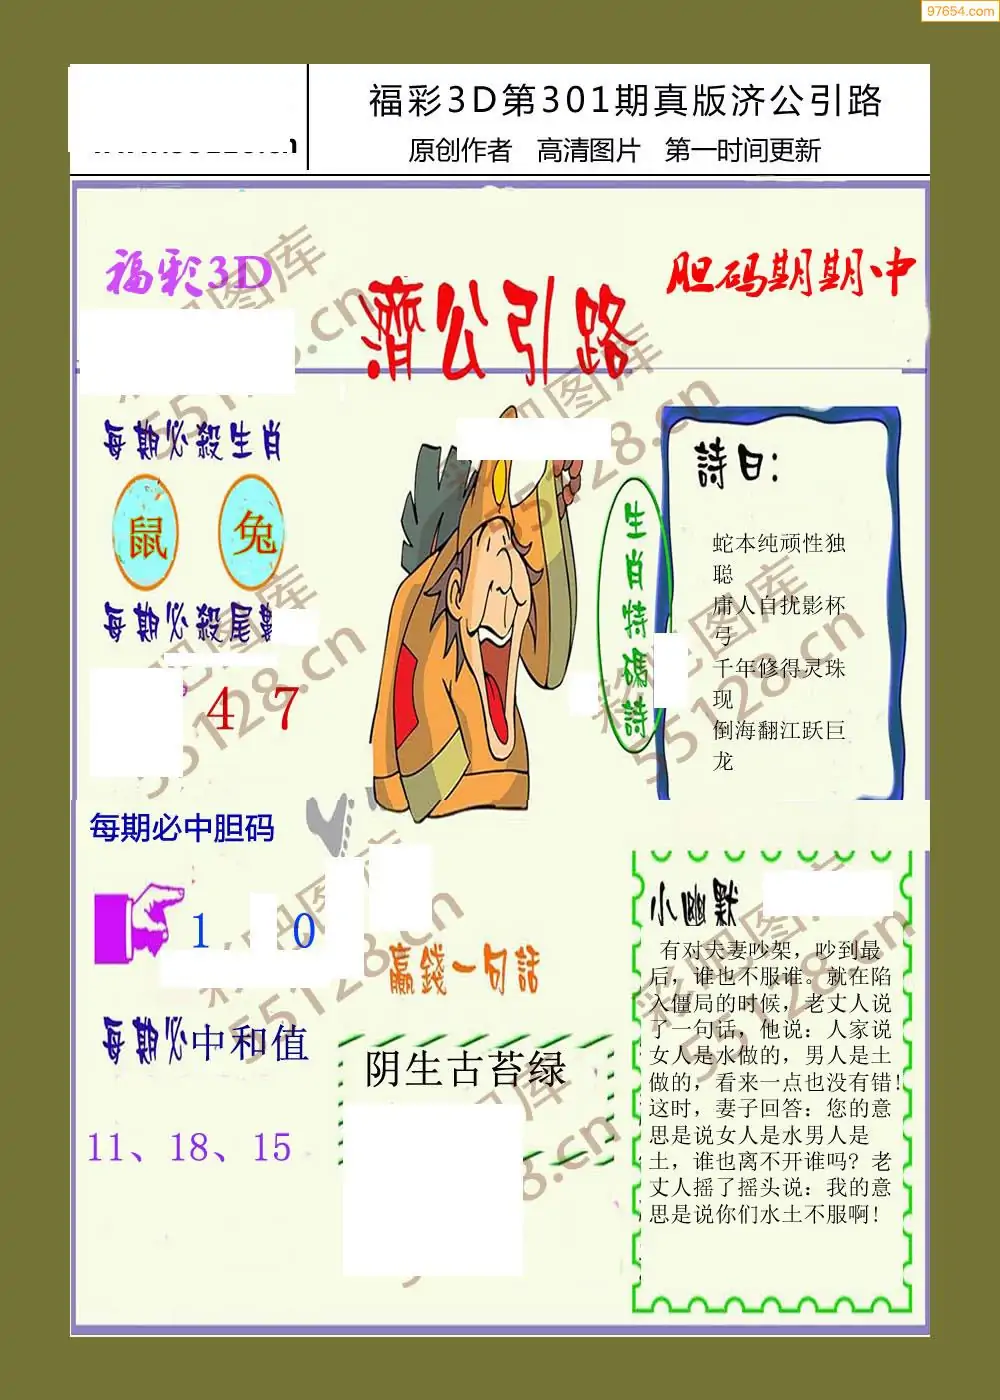 97654.com
福彩3D第301期真版济公引路
原创作者 高清图片 第一时间更新
福彩3D
胆码期期中
濟公引路
每期必殺生肖
鼠 兔
每期必殺尾
4 7
生肖特碼詩
詩曰：
蛇本纯顽性独
聪
庸人自扰影杯
弓
千年修得灵珠
现
倒海翻江跃巨
龙
每期必中胆码
1 0
每期必中和值
11、18、15
赢錢一句話
阴生古苔绿
小幽默
有对夫妻吵架，吵到最
后，谁也不服谁。就在陷
入僵局的时候，老丈人说
了一句话，他说：人家说
女人是水做的，男人是土
做的，看来一点也没有错！
这时，妻子回答：您的意
思是说女人是水男人是
土，谁也离不开谁吗？老
丈人摇了摇头说：我的意
思是说你们水土不服啊！
彩吧图库
55128.cn